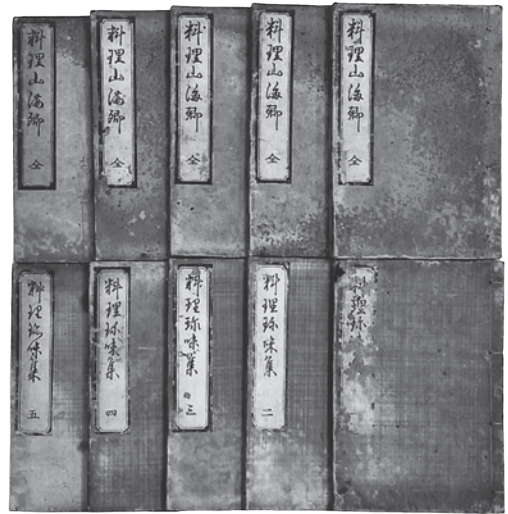 料理山海郷 全
料理山海郷 全
料理山海郷 全
料理山海郷 全
料理山海郷 全
料理珍
料理珍味集 二
料理珍味集 三
料理珍味集 四
料理珍味集 五